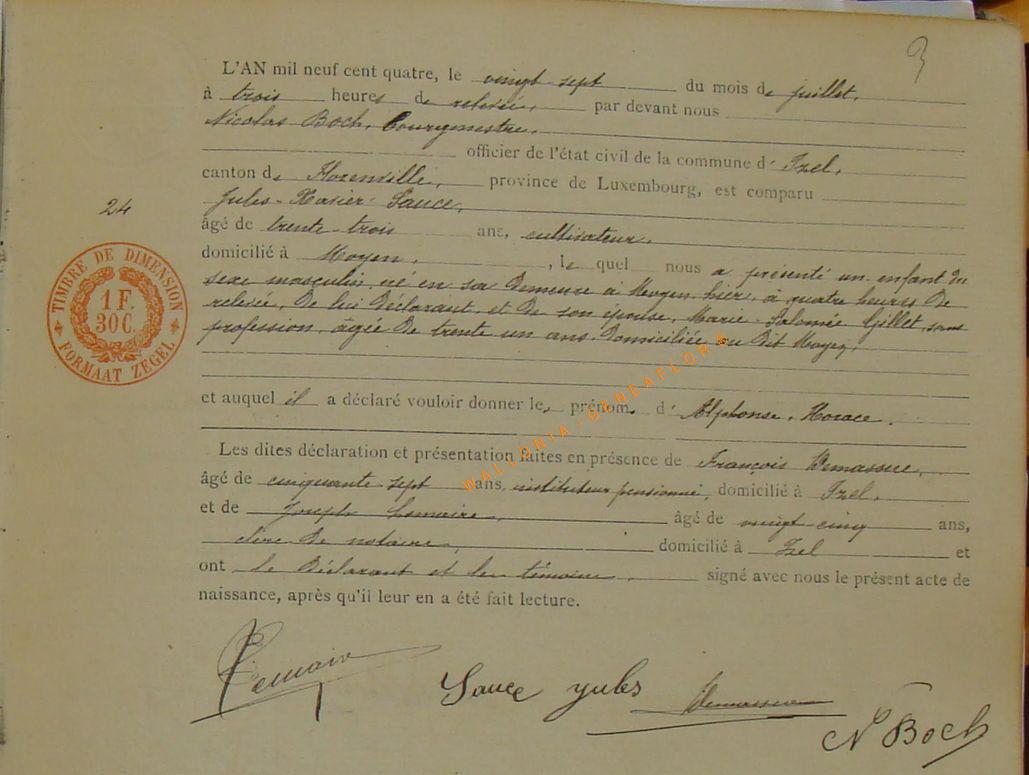 3
L'AN mil neuf cent quatre, le vingt-sept du mois de juillet,
à trois heures de relevée, par devant nous
Nicolas Boch, Bourgmestre,
officier de l'état civil de la commune d' Izel,
canton de Florenville, province de Luxembourg, est comparu
Jules-Xavier Sauce,
âgé de trente-trois ans, cultivateur,
domicilié à Moyen, , le quel nous a présenté un enfant du
sexe masculin, né en sa demeure à Moyen, hier, à quatre heures de
relevée, de lui déclarant et de son épouse, Marie-Salomée Gillet, sans
profession, âgée de trente un ans, domiciliée au dit Moyen,
et auquel il a déclaré vouloir donner les prénoms d' Alphonse, Horace.
Les dites déclaration et présentation faites en présence de François
âgé de cinquante-sept ans, instituteur pensionné, domicilié à Izel,
et de Joseph Lemaire, âgé de vingt-cinq ans,
clerc de notaire, domicilié à Izel et
ont le déclarant et les témoins signé avec nous le présent acte de
naissance, après qu'il leur en a été fait lecture.
24
TIMBRE DE DIMENSION
1 F.
30 C.
FORMAAT ZEGEL
WALLONIA-GENEAFLORE
Lemaire
Sauce yules
N Boch